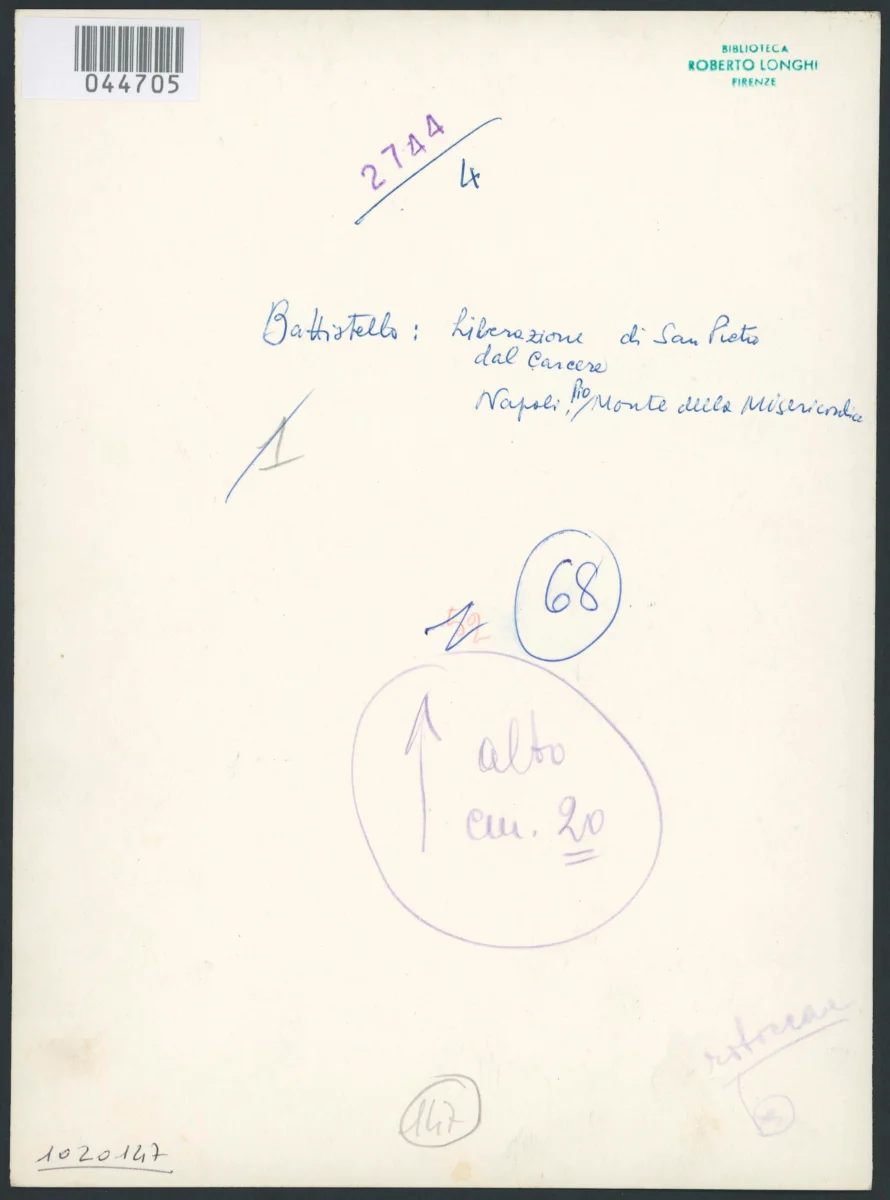 044705
BIBLIOTECA
ROBERTO LONGHI
FIRENZE
2744
4
Battistello: Liberazione di San Pietro
dal Carcere
Napoli, Pio Monte della Misericordia
1
68
52
alto
cm. 20
147
1020147